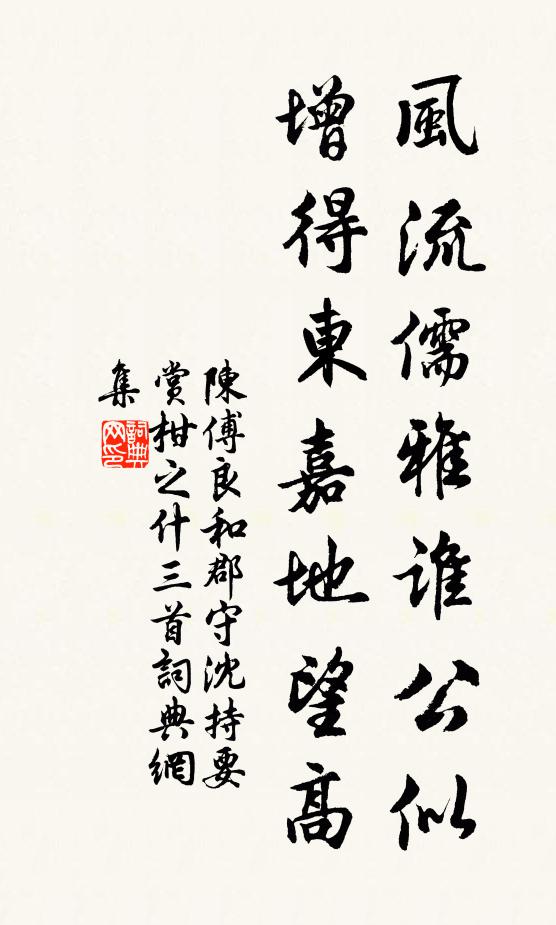 風流儒雅誰公似
增得東嘉地望高
陳傅良和郡守沈持要
賞柑之什三首詞典網
集
詞典網印